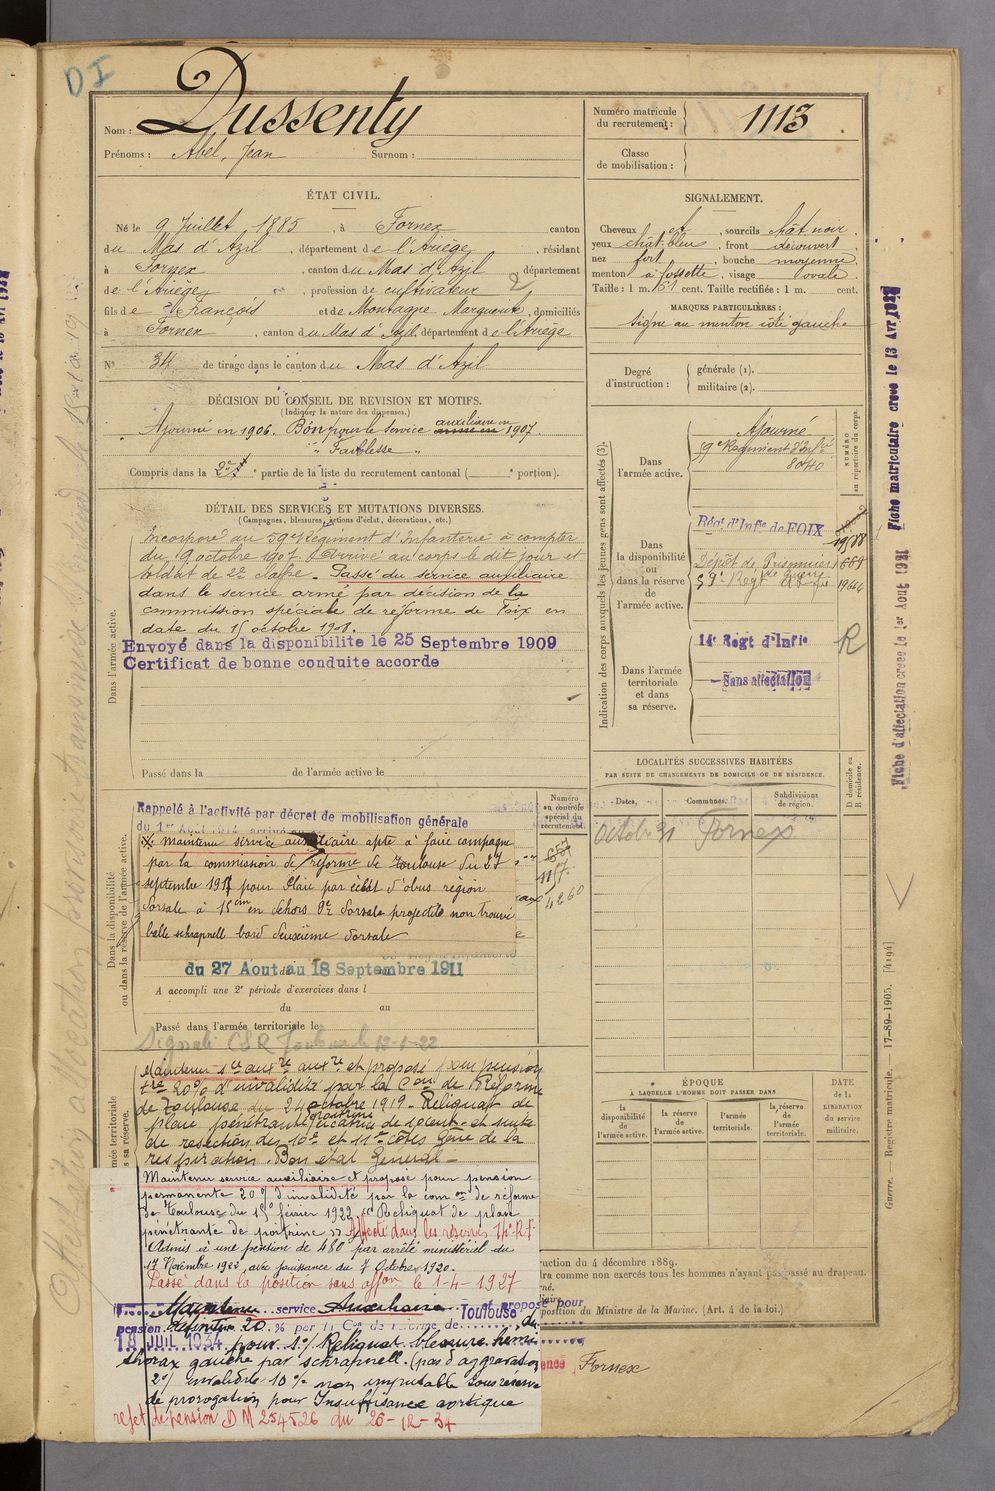 DI
Nom : Dussenty
Prénoms : Abel, Jean Surnom :
Numéro matricule
du recrutement : 1113
Classe
de mobilisation :
ÉTAT CIVIL.
Né le 9 Juillet 1885, à Fornex canton
du Mas d'Azil, département de l'Ariège, résidant
à Fornex, canton du Mas d'Azil département
de l'Ariège, profession de cultivateur 2
fils de François et de Montagne Marguerite, domiciliés
à Fornex, canton du Mas d'Azil département de l'Ariège
N° 34 de tirage dans le canton du Mas d'Azil
SIGNALEMENT.
Cheveux et, sourcils chât noir
yeux chât. bleu, front découvert
nez fort, bouche moyenne,
menton à fossette, visage ovale.
Taille : 1 m. 61 cent. Taille rectifiée : 1 m. cent.
MARQUES PARTICULIÈRES :
Signe au menton côté gauche
Degré
d'instruction :
générale (1).
militaire (2).
DÉCISION DU CONSEIL DE REVISION ET MOTIFS.
(Indiquer la nature des dispenses.)
Ajourné en 1906. Bon pour le service auxiliaire en 1907.
" Faiblesse "
Compris dans la 2e partie de la liste du recrutement cantonal ( portion).
DÉTAIL DES SERVICES ET MUTATIONS DIVERSES.
(Campagnes, blessures, actions d'éclat, décorations, etc.)
Dans l'armée active.
Incorporé au 59e Régiment d'Infanterie à compter
du 9 octobre 1907. Arrivé au corps le dit jour et
soldat de 2e classe. Passé du service auxiliaire
dans le service armé par décision de la
commission spéciale de réforme de Foix en
date du 15 octobre 1908.
Envoyé dans la disponibilité le 25 Septembre 1909
Certificat de bonne conduite accorde
Passé dans la de l'armée active le
Indication des corps auxquels les jeunes gens sont affectés (3).
NUMÉRO
au répertoire du corps.
Dans
l'armée active.
Ajourné
59e Régiment d'Infie
8040
Dans
la disponibilité
ou
dans la réserve
de
l'armée active.
Régt d'Infie de FOIX
Dépôt de Prisonniers
de guerre
59e Régt d'Infie
Dans l'armée
territoriale
et dans
sa réserve.
14e Regt d'Infie R
Sans affectation
LOCALITÉS SUCCESSIVES HABITÉES
PAR SUITE DE CHANGEMENTS DE DOMICILE OU DE RÉSIDENCE.
Dates. Communes. Subdivisions
de région.
D domicile ou
R résidence.
Octob 31 Fornex
Dans la disponibilité
ou dans la réserve de l'armée active.
Numéro
au contrôle
spécial du
recrutement.
Rappelé à l'activité par décret de mobilisation générale
du 1er Aout 1914
maintenu service auxiliaire apte à faire campagne
par la commission de réforme de Toulouse du 27
septembre 1917 pour plaie par éclat d'obus région
dorsale à 15cm en dehors 9e dorsale projectile non trouvé
balle schrapnelle bord deuxième dorsale
4260
du 27 Aout au 18 Septembre 1911
A accompli une 2e période d'exercices dans l
du au
Passé dans l'armée territoriale le
Signalé CSR Toulouse le 12-1-22
Maintenu sce auxre et proposé pour pension
20% d'invalidité par la Con de Réforme
de Toulouse du 24 octobre 1919. Reliquat de
plaie pénétrante poitrine cicatrice de 10 cent. et suite
de resection des 10e et 11e côtes gêne de la
respiration. Bon état Général
Maintenu service auxiliaire et proposé pour pension
permanente 20% d'invalidité par la com on de réforme
de Toulouse du 15 février 1922 "Reliquat de plaie
pénétrante de poitrine" Affecté dans les réserves 14e R.I.
Admis à une pension de 480 par arrêté ministériel du
17 Novembre 1922, avec jouissance du 7 Octobre 1920.
Passé dans la position sans affon le 1-4-1927
Maintenu service Auxiliaire et proposé pour
pension définitive 20 % par la Con de réforme de Toulouse du
18 JUIL 1934 pour 1°/ Reliquat blessure hémi
thorax gauche par schrapnell. (pas d'aggravation
2°/ invalidité 10% non imputable sous réserve
de prorogation pour Insuffisance aortique
rejet de pension DM 254526 du 26-12-34
Fornex
ÉPOQUE
À LAQUELLE L'HOMME DOIT PASSER DANS
la
disponibilité
de
l'armée active.
la réserve
de
l'armée active.
l'armée
territoriale.
la réserve
de
l'armée
territoriale.
DATE
de la
LIBÉRATION
du service
militaire.
ruction du 4 décembre 1889.
dra comme non exercés tous les hommes n'ayant pas passé au drapeau.
position du Ministre de la Marine. (Art. 4 de la loi.)
Fiche matriculaire creee le 13 Avr
Fiche d'affectation creee le 1er Aout 1921
Guerre. — Registre matricule. — 17-89-1905. [4194]